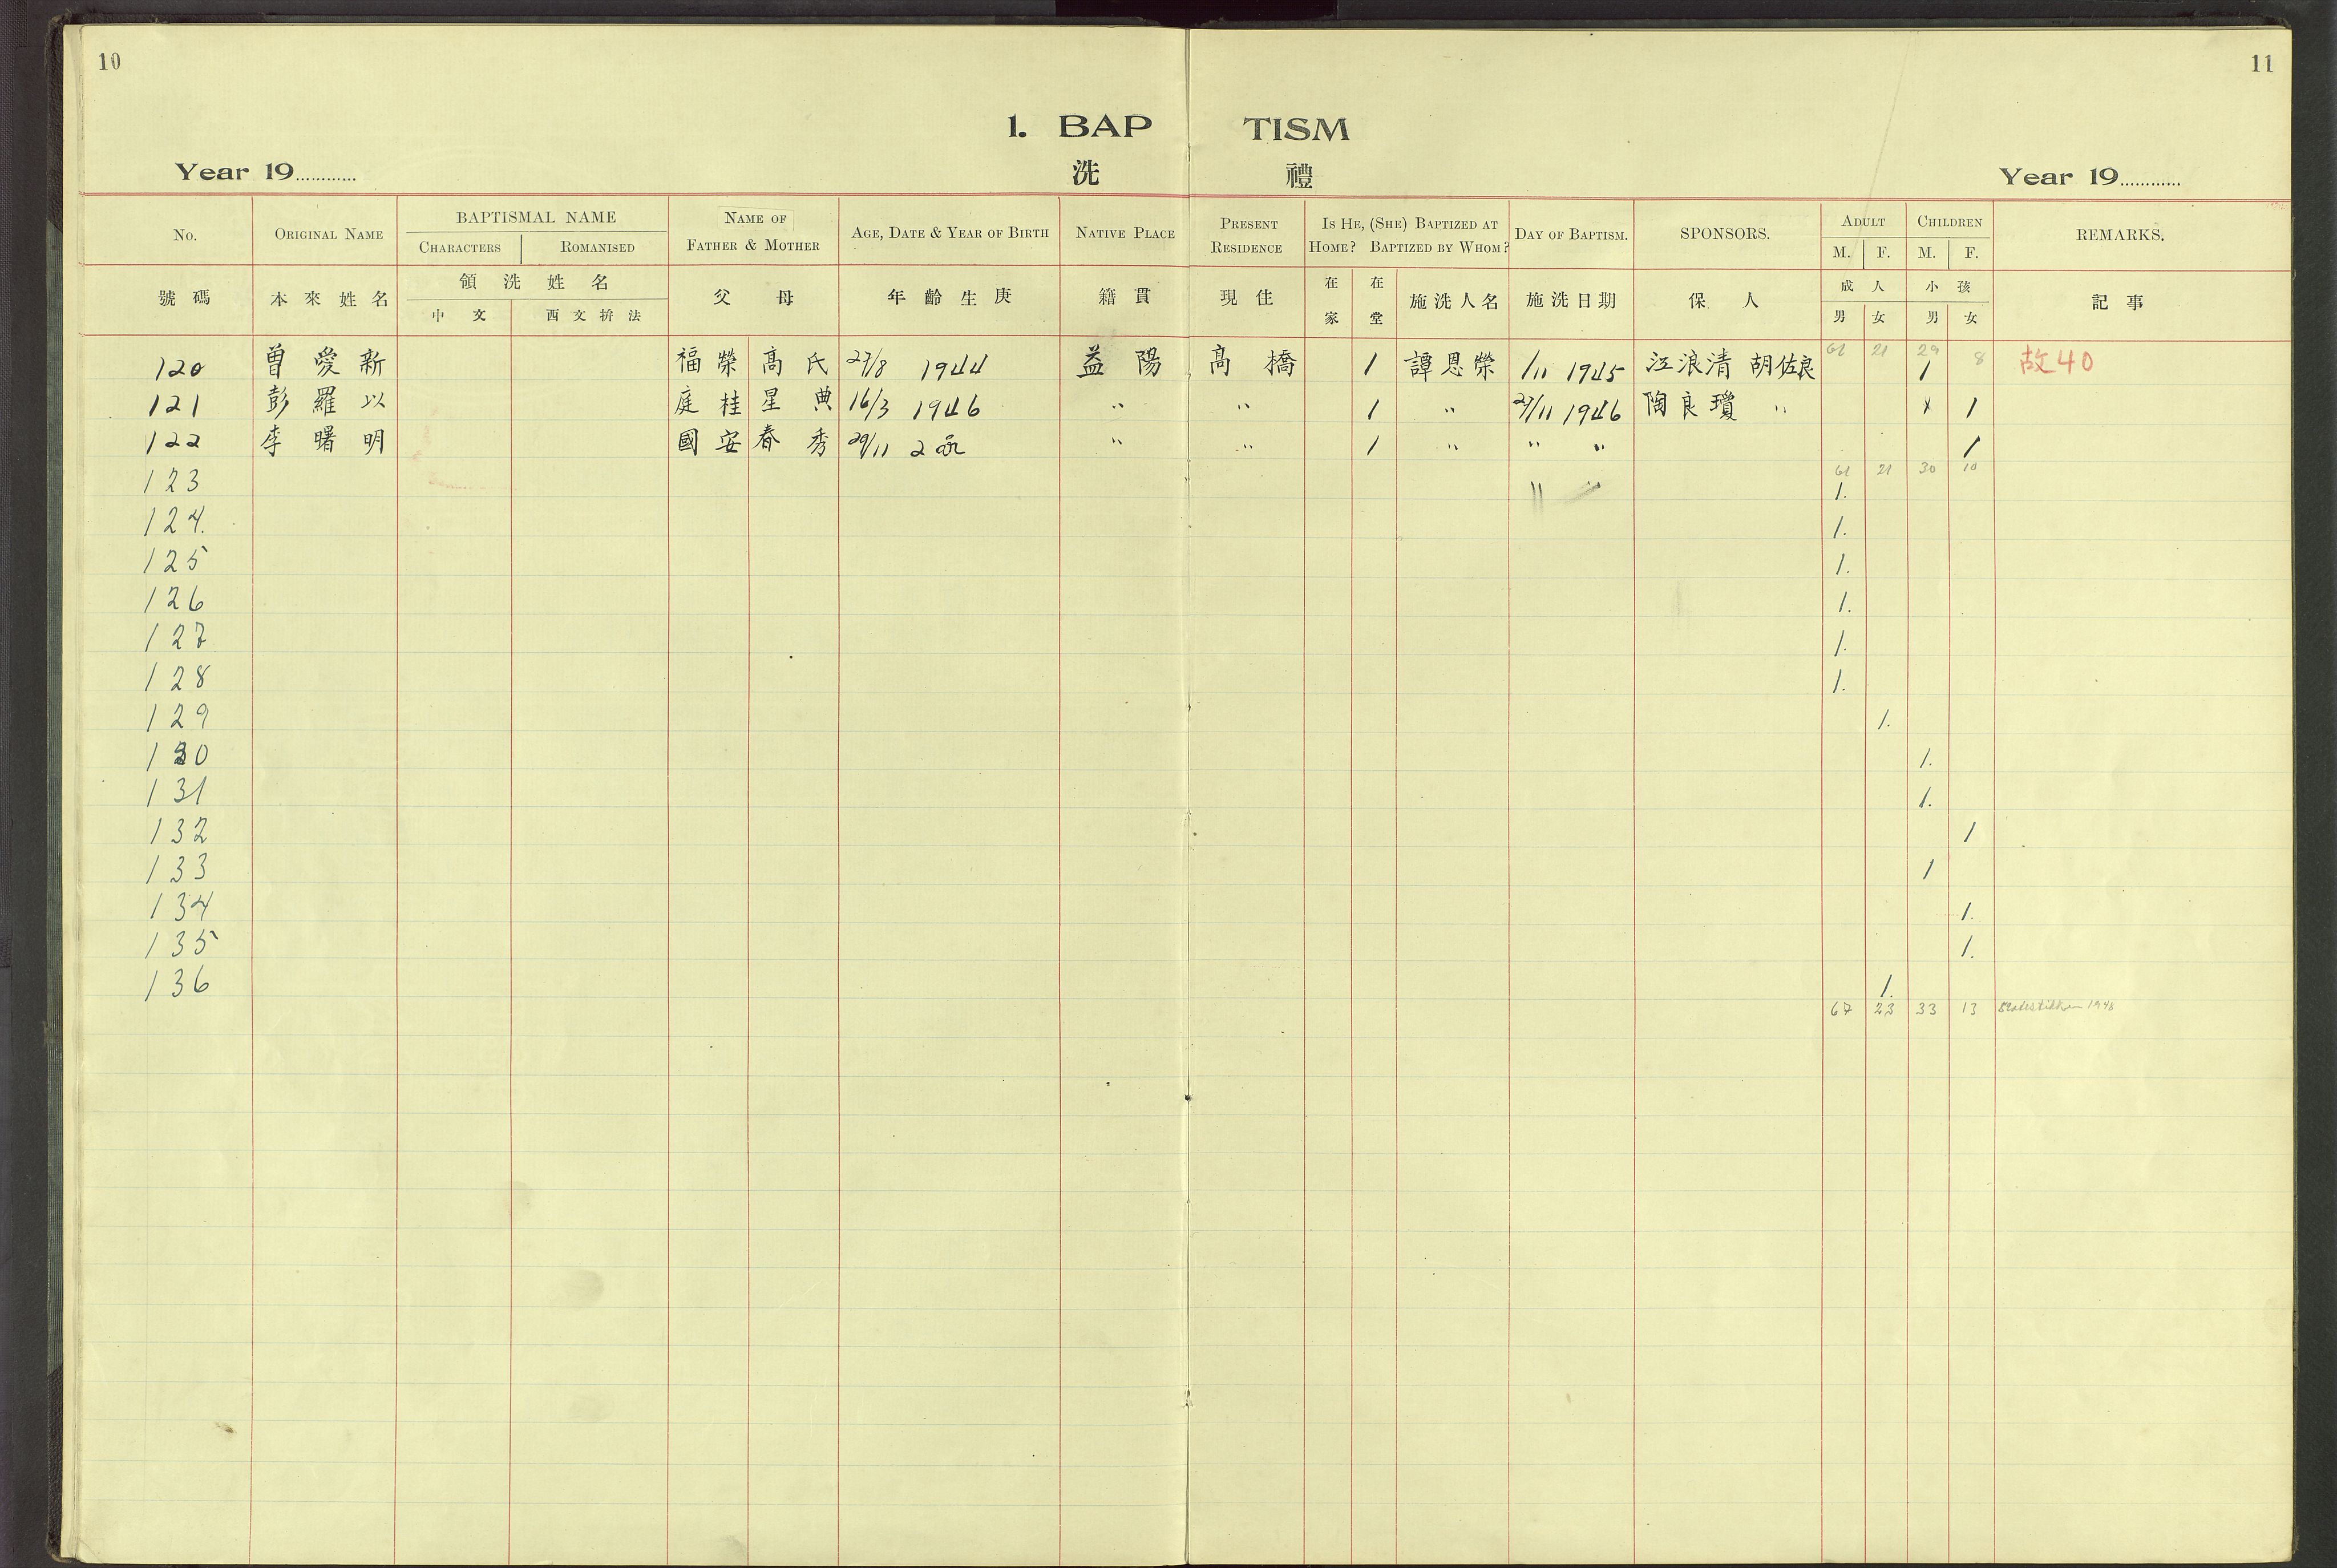 10
11
1. BAPTISM
洗 禮
Year 19............ Year 19............
No. ORIGINAL NAME BAPTISMAL NAME CHARACTERS ROMANISED NAME OF FATHER & MOTHER AGE, DATE & YEAR OF BIRTH NATIVE PLACE PRESENT RESIDENCE IS HE, (SHE) BAPTIZED AT HOME? BAPTIZED BY WHOM? DAY OF BAPTISM. SPONSORS. ADULT M. F. CHILDREN M. F. REMARKS.
號碼 本來姓名 領洗姓名 中文 西文拚法 父母 年齡生庚 籍貫 現住 在家 在堂 施洗人名 施洗日期 保人 成人 男 女 小孩 男 女 記事
61 21 29 8
120 曾愛新 福榮 高氏 27/8 1944 益陽 高橋 1 譚恩榮 1/11 1945 江浪清 胡佐良 1 故40
121 彭羅以 庭桂 星典 16/3 1946 " " 1 " 27/11 1946 陶良瓊 " x 1
122 李曙明 國安 春秀 29/11 2 " " 1 " " " 1
61 21 30 10
123 " " 1.
124. 1.
125 1.
126 1.
127 1.
128 1.
129 1.
130 1.
131 1.
132 1
133 1
134 1.
135 1.
136 1.
67 23 33 13 Statistikken 1948